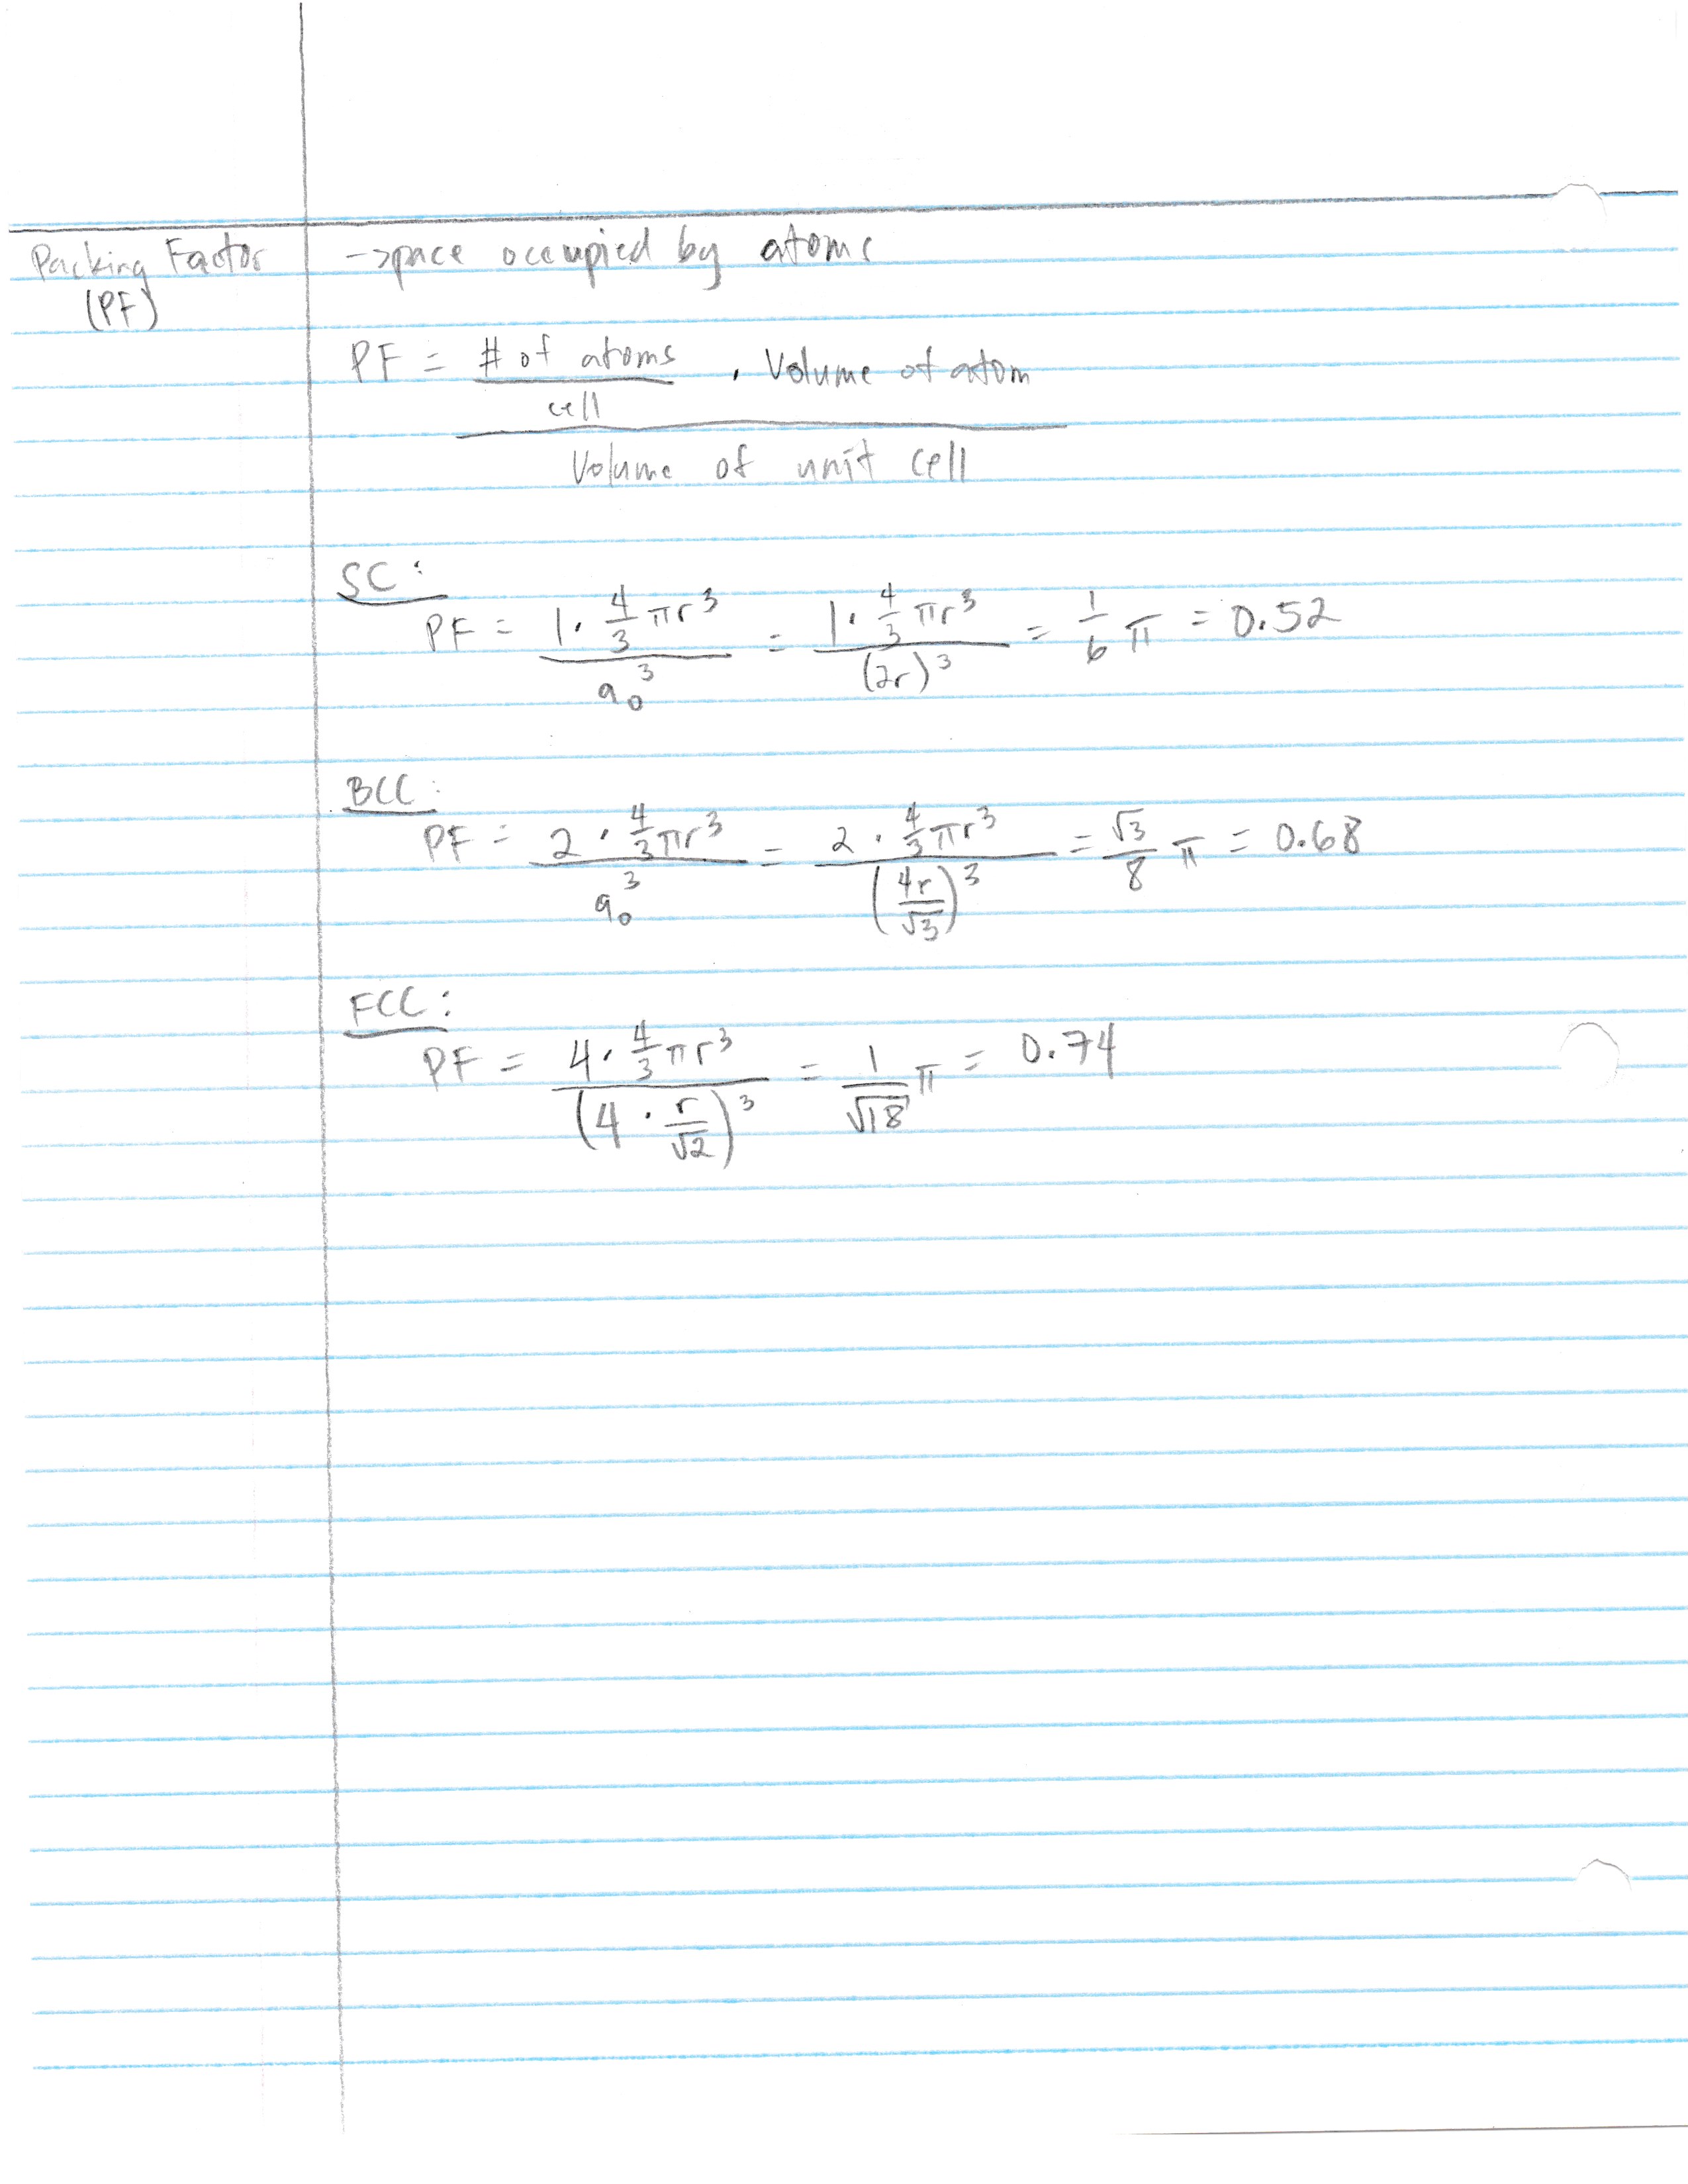 Packing Factor
(PF)
- space occupied by atoms
PF = # of atoms / cell · Volume of atom
Volume of unit cell
SC:
PF = 1 · 4/3 πr³ / a₀³ = 1 · 4/3 πr³ / (2r)³ = 1/6 π = 0.52
BCC:
PF = 2 · 4/3 πr³ / a₀³ = 2 · 4/3 πr³ / (4r/√3)³ = √3/8 π = 0.68
FCC:
PF = 4 · 4/3 πr³ / (4 · r/√2)³ = 1/√18 π = 0.74